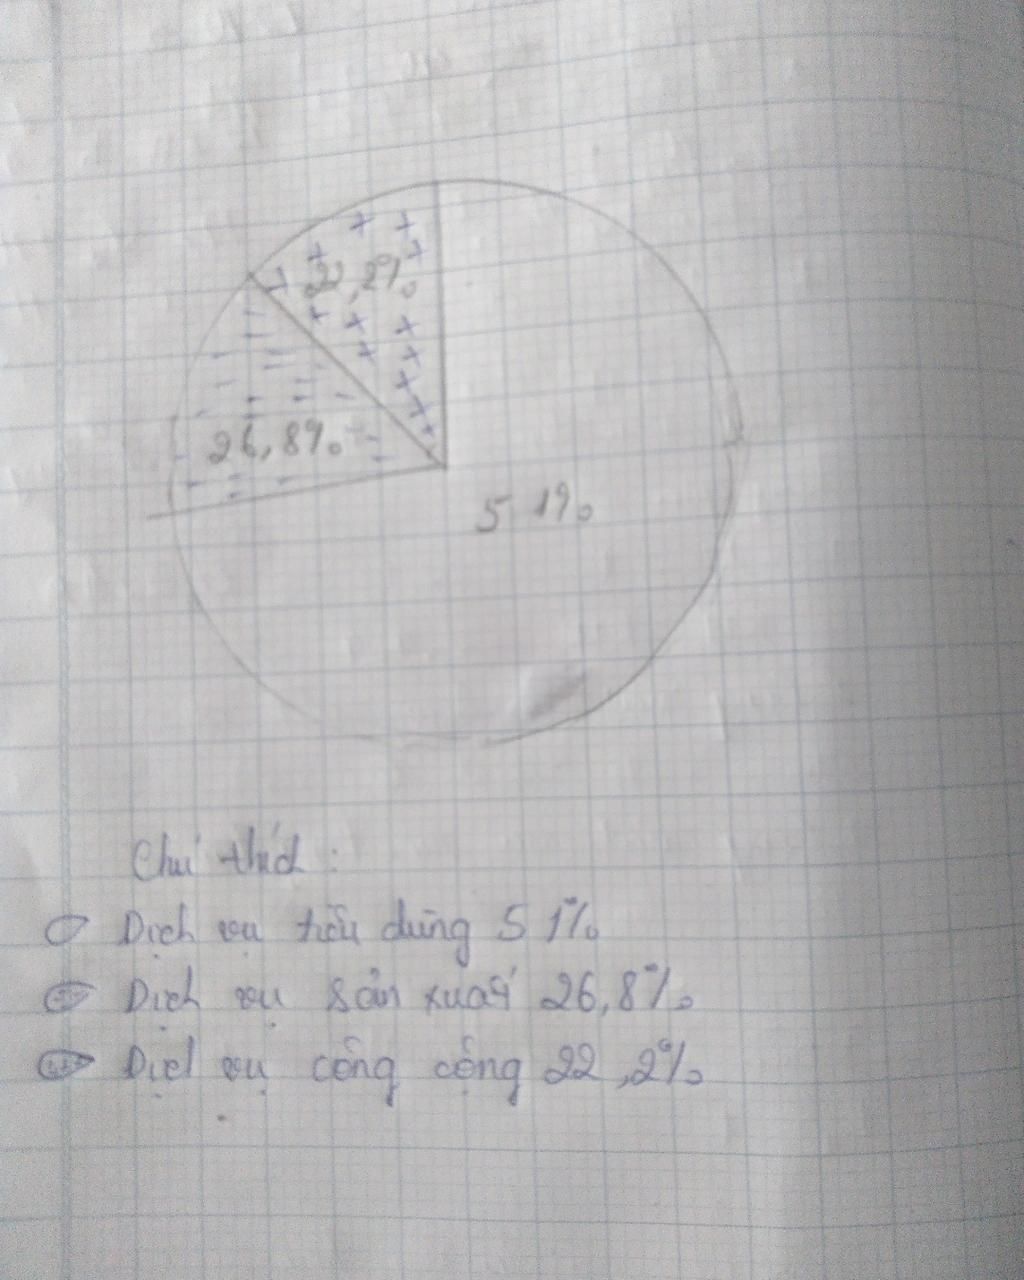 22,2%
26,8%
51%
Chú thích :
Dịch vụ tiêu dùng 51%
Dịch vụ sản xuất 26,8%
Dịch vụ công cộng 22,2%